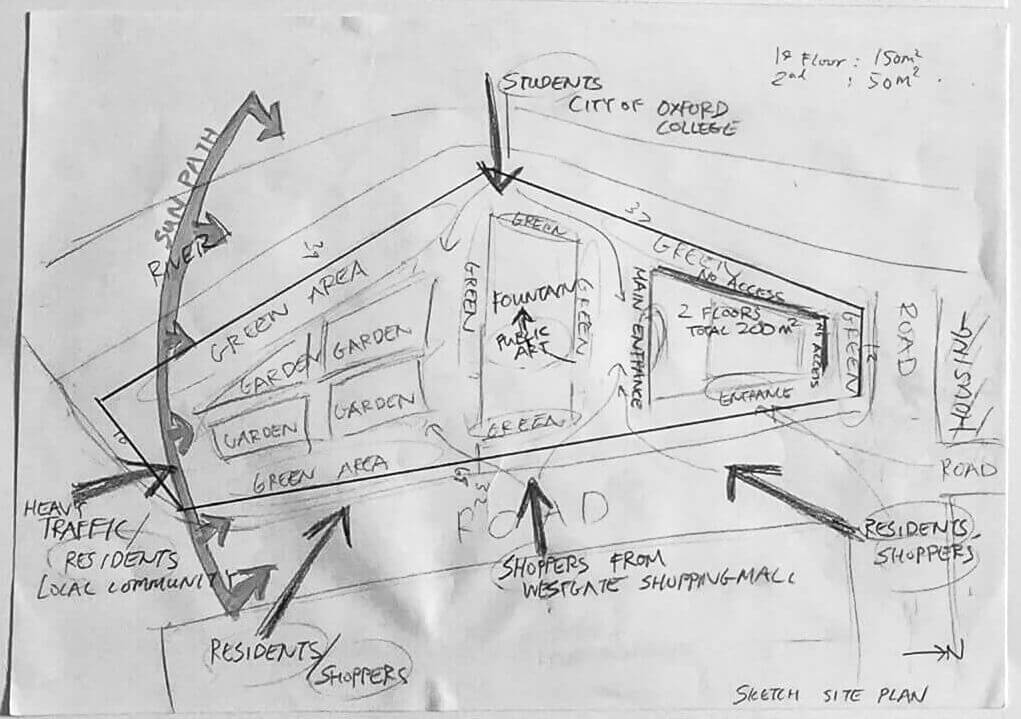 1st Floor : 150m²
2nd : 50m²
STUDENTS
CITY OF OXFORD
COLLEGE
SUN PATH
RIVER
37
GREEN AREA
GREEN
GREEN
NO ACCESS
GREEN
FOUNTAIN
GREEN
PUBLIC
ART
MAIN ENTRANCE
2 FLOORS
TOTAL 200m²
NO ACCESS
GREEN
ROAD
HOUSING
GARDEN
GARDEN
GARDEN
GARDEN
ENTRANCE
GREEN
GREEN AREA
ROAD
ROAD
HEAVY
TRAFFIC/
RESIDENTS
LOCAL COMMUNITY
SHOPPERS FROM
WESTGATE SHOPPING MALL
RESIDENTS,
SHOPPERS
RESIDENTS/
SHOPPERS
N
SKETCH SITE PLAN